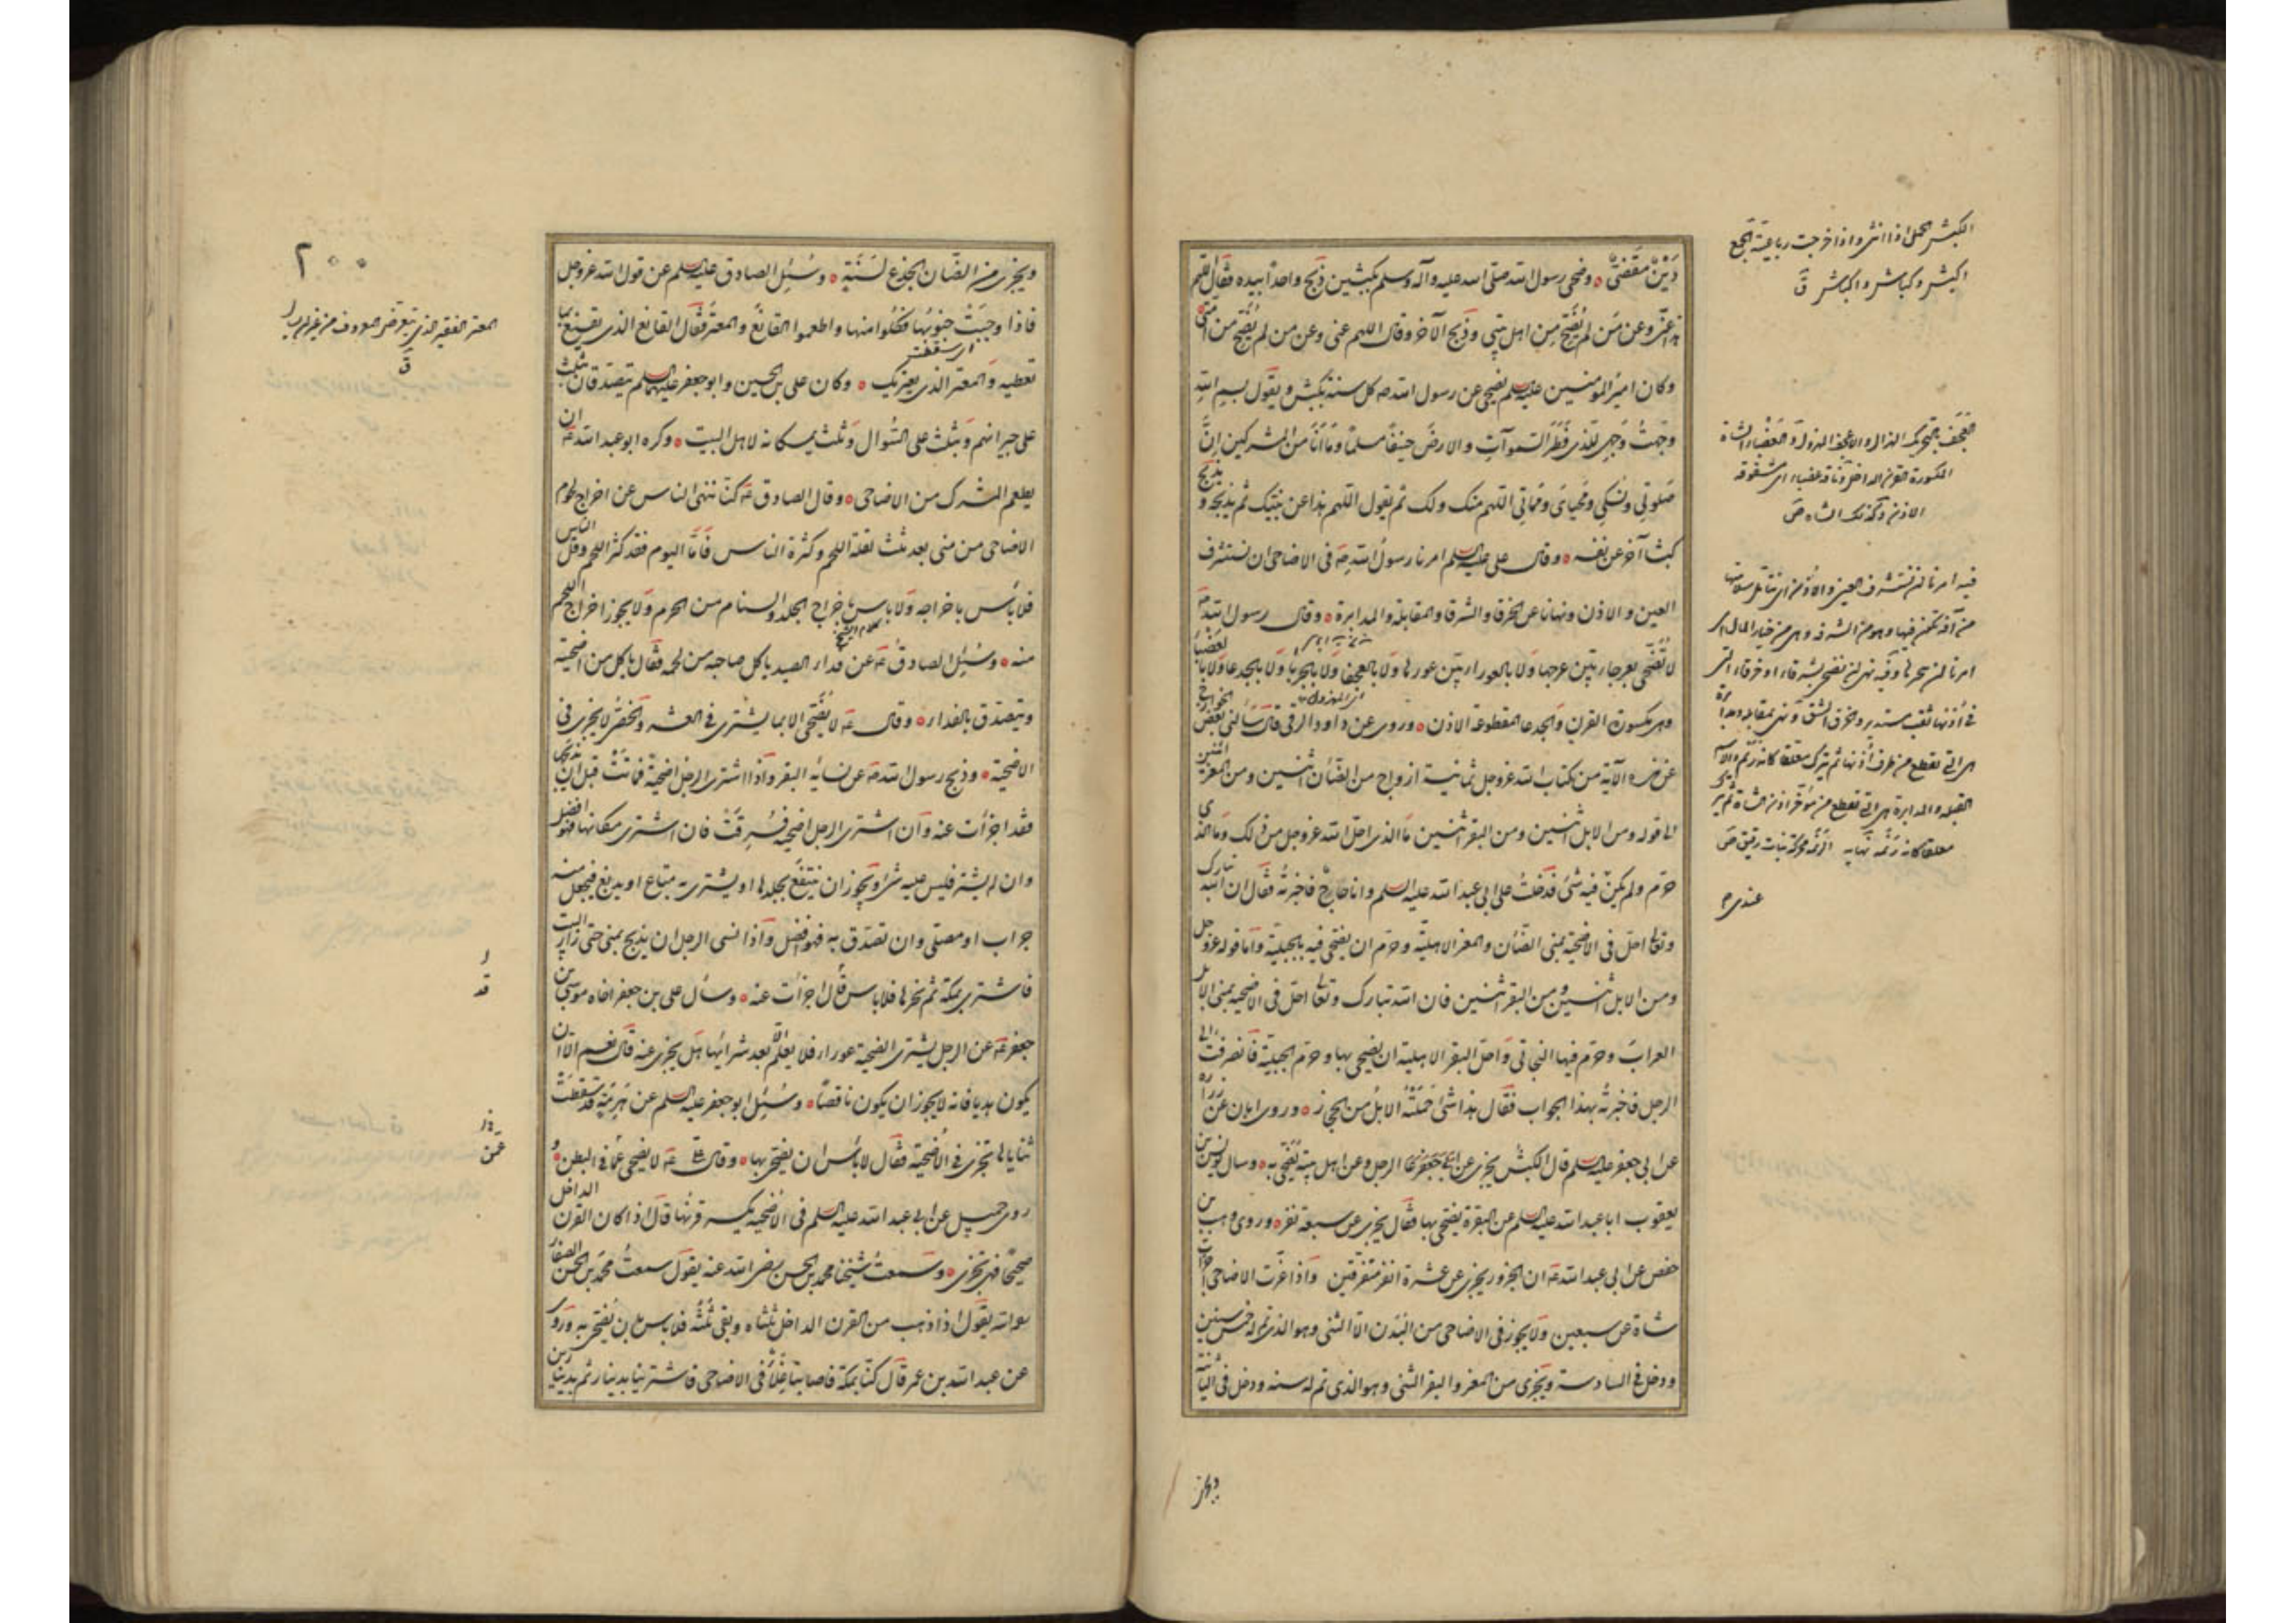 دَيْنٌ مَقْضِيٌّ وضحى رسول الله صلى الله عليه وآله وسلم بكبشين ذبح واحداً بيده فقال اللهم
هذا عنّي وعن مَن لم يُضَحِّ مِن اهل بيتي وذبح الآخر وقال اللهم عني وعن من لم يُضَحِّ من امّتي
وكان امير المومنين عليه السلم يضحي عن رسول الله صه كل سنة بكبش ويقول بسم الله
وجّهتُ وَجهي للذي فَطَر السَّموات والارضَ حنيفاً مسلماً وما اَنَا من المشركين اِنَّ
صَلوتي ونُسكي ومَحيايَ ومَماتي اللهم منك ولك ثم يقول اللهم هذا عن نبيّك ثم يذبحه ويذبح
كبشا آخر عن نفسه وقال على عليه السلم امرنا رسولُ الله صه فى الاضاحى ان نستشرف
العين والاذن ونهانا عن الخرقا والشرقا والمقابلة والمدابرة وقال رسول الله صه
لا تُضَحّى بعرجا بيّن عرجها وَلا بالعورا بيّن عورها وَلا بالعجفا ولا بالجربا وَلا بالجدعا ولا بالعَضْبَا
وهى مكسورة القرن وَالجدعا المقطوعة الاذن وروى عن داود الرقى قال سَالنى بعضُ الخوارج
عن هذه الآية من كتاب الله عز وجل ثمانية ازواج من الضأن اثنين ومن المعز اثنين
الى قوله ومن الابل اثنين ومن البقر اثنين مَا الذى احلّ الله عز وجل من ذلك وَمَا الذى
حرّم ولم يكن فيه شئ فدخلتُ على ابى عبد الله عليه السلم وانا حاجٌّ فاخبرتُه فقال ان الله تبارك
وتعالى احلّ فى الاضحية بمنى الضَّأن والمعز الاهلية وحرّم ان يضحى فيه بالجبليّة وَامّا قوله عز وجل
ومن الابل اثنين ومن البقر اثنين فان الله تبارك وتعالى احلّ فى الاضحية بمنى الابل
العرابَ وحرّم فيها البخاتى وَاحلّ البقر الاهلية ان يضحى بها وحرّم الجبليّة فانصرفتُ الى
الرجل فاخبرتُه بهذا الجواب فقال هذا شئ حَمَلَتْهُ الابلُ من الحجاز وروى ابان عن زرارة
عن ابى جعفر عليه السلم قال الكبش يجزى عن الرجل وعن اهل بيته يُضحّى به وسال يونس بن
يعقوب ابا عبد الله عليه السلم عن البقرة يضحى بها فقال يجزى عن سبعة نفر وروى وهيب بن
حفص عن ابى عبد الله عه ان الجزور يجزى عن عشرة انفر متفرقين وَاذا عَزّت الاضاحى اجزأت
شاة عن سبعين ولا يجوز فى الاضاحى من البُدن الا الثنى وهو الذى تم له خمس سنين
ودخل فى السادسة ويجزى من المعز والبقر الثنى وهو الذى تم له سنه ودخل فى الثانية
ويجزى
الكبش الحمل اذا اثنى واذا خرجت رباعيته الجمع
اكبش وكباش واكباش ق
عندى م
ويجزى من الضّان الجذع لسَنَةٍ وسُئِل الصادق عليه السلم عن قول الله عز وجل
فاذا وجبَتْ جنوبُها فكُلوا منها واطعموا القانعَ والمعترَّ فقال القانع الذى يقنع بما
اى سقطت
تعطيه وَالمعتر الذى يعتريك وكان على بن الحسين وابو جعفر عليهما السلم يتصدّقان بثلث
على جيرانهم وَبثلث على السُّوال وَثلث يمسكانه لاهل البيت وكره ابو عبد الله عه ان
يطعم المشرك من الاضاحى وقال الصادق عه كنّا ننهى الناس عن اخراج لحوم
الاضاحى من منى بعد ثلث لقلّة اللحم وكثرة الناس فَامّا اليوم فقد كثر اللحم وقلّ الناس
فلا باَس باخراجه وَلا باس باخراج الجلد والسنام من الحرم وَلا يجوز اخراج اللحم
منه وسُئِل الصادقُ عه عن فداء الصيد ياكل صاحبه من لحمه فقال ياكل من اضحيته
ويتصدّق بالفداء وقال عه لا يُضَحّى الا بما يشترى فى العشر والخصىُّ لا يجزى فى
الاضحية وذبح رسول الله صه عن نسائه البقر وَاذا اشترى الرجل اضحيّة فماتتْ قبل ان يذبحها
فقد اجزأت عنه وَان اشترى الرجل اضحيه فسُرِقَتْ فان اشترى مكانها فهو افضل
وان لم يشتر فليس عليه شئ ويجوز ان ينتفع بجلدها او يشترى به متاع او يدبغ فيجعل منه
جراب او مصلّى وان تصدّق به فهو افضل وَاذا نسى الرجل ان يذبح بمنى حتى زار البيت
فاشترى بمكة ثم نحرها فلا باس قد اجزأت عنه وسأل على بن جعفر اخاه موسى بن
جعفر عه عن الرجل يشترى الضحية عورا فلا يعلم الا بعد شرائها هل يجزى عنه قال نعم الا ان
يكون هديا فانه لا يجوز ان يكون ناقصاً وسُئِل ابو جعفر عليه السلم عن هَرِمَةٍ قد سقطت
ثناياها تجزى فى الاُضحيّة فقال لا باَس ان يضحّى بها وقال على عه لا يضحى عمّا فى البطن و
روى جميل عن ابى عبد الله عليه السلم فى الاُضحيه يكسر قرنُها قال اذا كان القرن الداخل
صحيحاً فهى تجزى وسَمعتُ شيخنا محمد بن الحسن رضى الله عنه يقول سمعتُ محمّد بن الحسن الصفار
رحمه الله يقول اذا ذهب من القرن الداخل ثلثاه وبقى ثلثُه فلا باس بان يُضحّى به وروى
عن عبد الله بن عمر قال كنّا بمكة فاصابنا غلاءٌ فى الاضاحى فاشترينا بدينار ثم بدينارين
٢٠٠
المعتر الفقير الذى يتعرض للمعروف من غير ان يسأل
ق